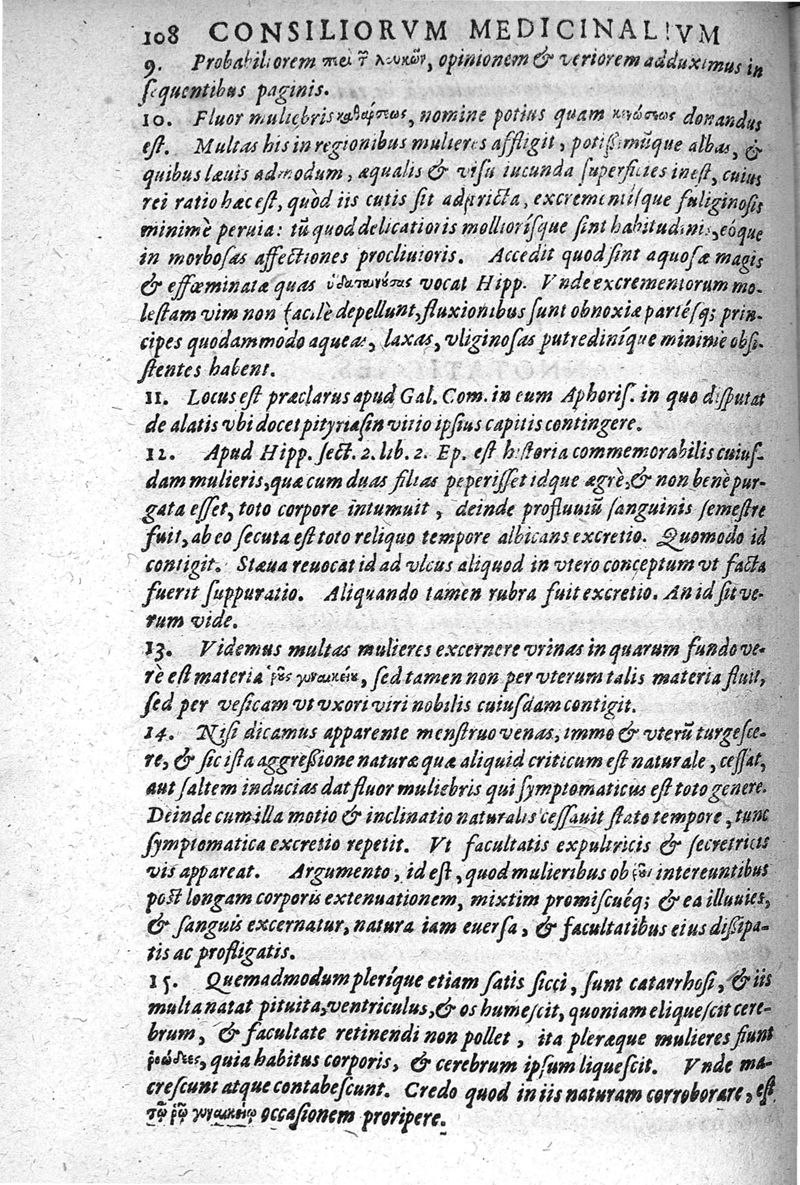 108 CONSILIORVM MEDICINALIVM
9. Probabiliorem περὶ τ λευκῶν, opinionem & veriorem adduximus in
sequentibus paginis.
10. Fluor muliebris καθάρσεως, nomine potius quam κενώσεως donandus
est. Multas his in regionibus mulieres affligit, potißimũque albas, &
quibus læuis admodum, æqualis & visu iucunda superficies inest, cuius
rei ratio hæc est, quòd iis cutis sit adstricta, excrementisque fuliginosis
minimè peruia: tũ quod delicatioris molliorísque sint habitudinis, eóque
in morbosas affectiones procliuioris. Accedit quod sint aquosæ magis
& effœminatæ quas vocat Hipp. Vnde excrementorum mo-
lestam vim non facilè depellunt, fluxionibus sunt obnoxiæ partésq; prin-
cipes quodammodo aqueas, laxas, vliginosas putrediníque minimè obsi-
stentes habent.
11. Locus est præclarus apud Gal. Com. in eum Aphoris. in quo disputat
de alatis vbi docet pityriasin vitio ipsius capitis contingere.
12. Apud Hipp. sect. 2. lib. 2. Ep. est historia commemorabilis cuius-
dam mulieris, quæ cum duas filias peperisset idque ægrè, & non benè pur-
gata esset, toto corpore intumuit, deinde profluuiũ sanguinis semestre
fuit, ab eo secuta est toto reliquo tempore albicans excretio. Quomodo id
contigit. Stæua reuocat id ad vlcus aliquod in vtero conceptum vt facta
fuerit suppuratio. Aliquando tamèn rubra fuit excretio. An id sit ve-
rum vide.
13. Videmus multas mulieres excernere vrinas in quarum fundo ve-
rè est materia ῥοῦς γυναικείου, sed tamen non per vterum talis materia fluit,
sed per vesicam vt vxori viri nobilis cuiusdam contigit.
14. Nisi dicamus apparente menstruo venas, immo & vterũ turgesce-
re, & sic ista aggreßione naturæ quæ aliquid criticum est naturale, cessat,
aut saltem inducias dat fluor muliebris qui symptomaticus est toto genere.
Deinde cum illa motio & inclinatio naturalis cessauit stato tempore, tunc
symptomatica excretio repetit. Vt facultatis expultricis & secretricis
vis appareat. Argumento, id est, quod mulieribus ob ῥοῦ intereuntibus
post longam corporis extenuationem, mixtim promiscuéq; & ea illuuies,
& sanguis excernatur, natura iam euersa, & facultatibus eius dißipa-
tis ac profligatis.
15. Quemadmodum pleríque etiam satis sicci, sunt catarrhosi, & iis
multa natat pituita, ventriculus, & os humescit, quoniam eliquescit cere-
brum, & facultate retinendi non pollet, ita pleræque mulieres fiunt
ῥοώδεες, quia habitus corporis, & cerebrum ipsum liquescit. Vnde ma-
crescunt atque contabescunt. Credo quod in iis naturam corroborare, est
τῷ ῥῷ γυναικείῳ occasionem proripere.